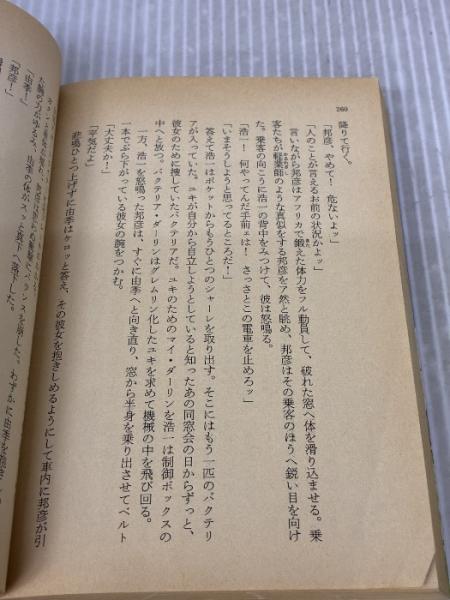 260
降りて行く。
「邦彦、やめて! 危ないよッ」
「人のことが言えるお前の状況かよッ」
言いながら邦彦はアフリカで鍛えた体力をフル動員して、破れた窓へ体を滑り込ませる。乗
客たちが軽業師のような真似をする邦彦をア然と眺め、邦彦はその乗客のほうへ鋭い目を向け
た。乗客の向こうに浩一の背中をみつけて、彼は怒鳴る。
「浩一! 何やってんだ手前ェは! さっさとこの電車を止めろッ」
「いまそうしようと思ってるところだ!」
答えて浩一はポケットからもうひとつのシャーレを取り出す。そこにはもう一匹のバクテリ
アが入っていた。ユキが自分から自立しようとしていると知ったあの同窓会の日からずっと、
彼女のために捜していたバクテリアだ。ユキのためのマイ・ダーリンを浩一は制御ボックスの
中へと放つ。バクテリア・ダーリンはグレムリン化したユキを求めて機械の中を飛び回る。
一方、浩一を怒鳴った邦彦は、すぐに由季へと向き直り、窓から半身を乗り出させてベルト
一本でぶら下がっている彼女の腕をつかむ。
「大丈夫か!」
「平気だよ」
悲鳴ひとつ上げずに由季はケロッと答え、その彼女を抱きしめるようにして車内に邦彦が引
た腕の力がゆるみ、由季の体がスッと真下へ落下した。わずかに由季を抱き
「由季!」
「邦彦!」